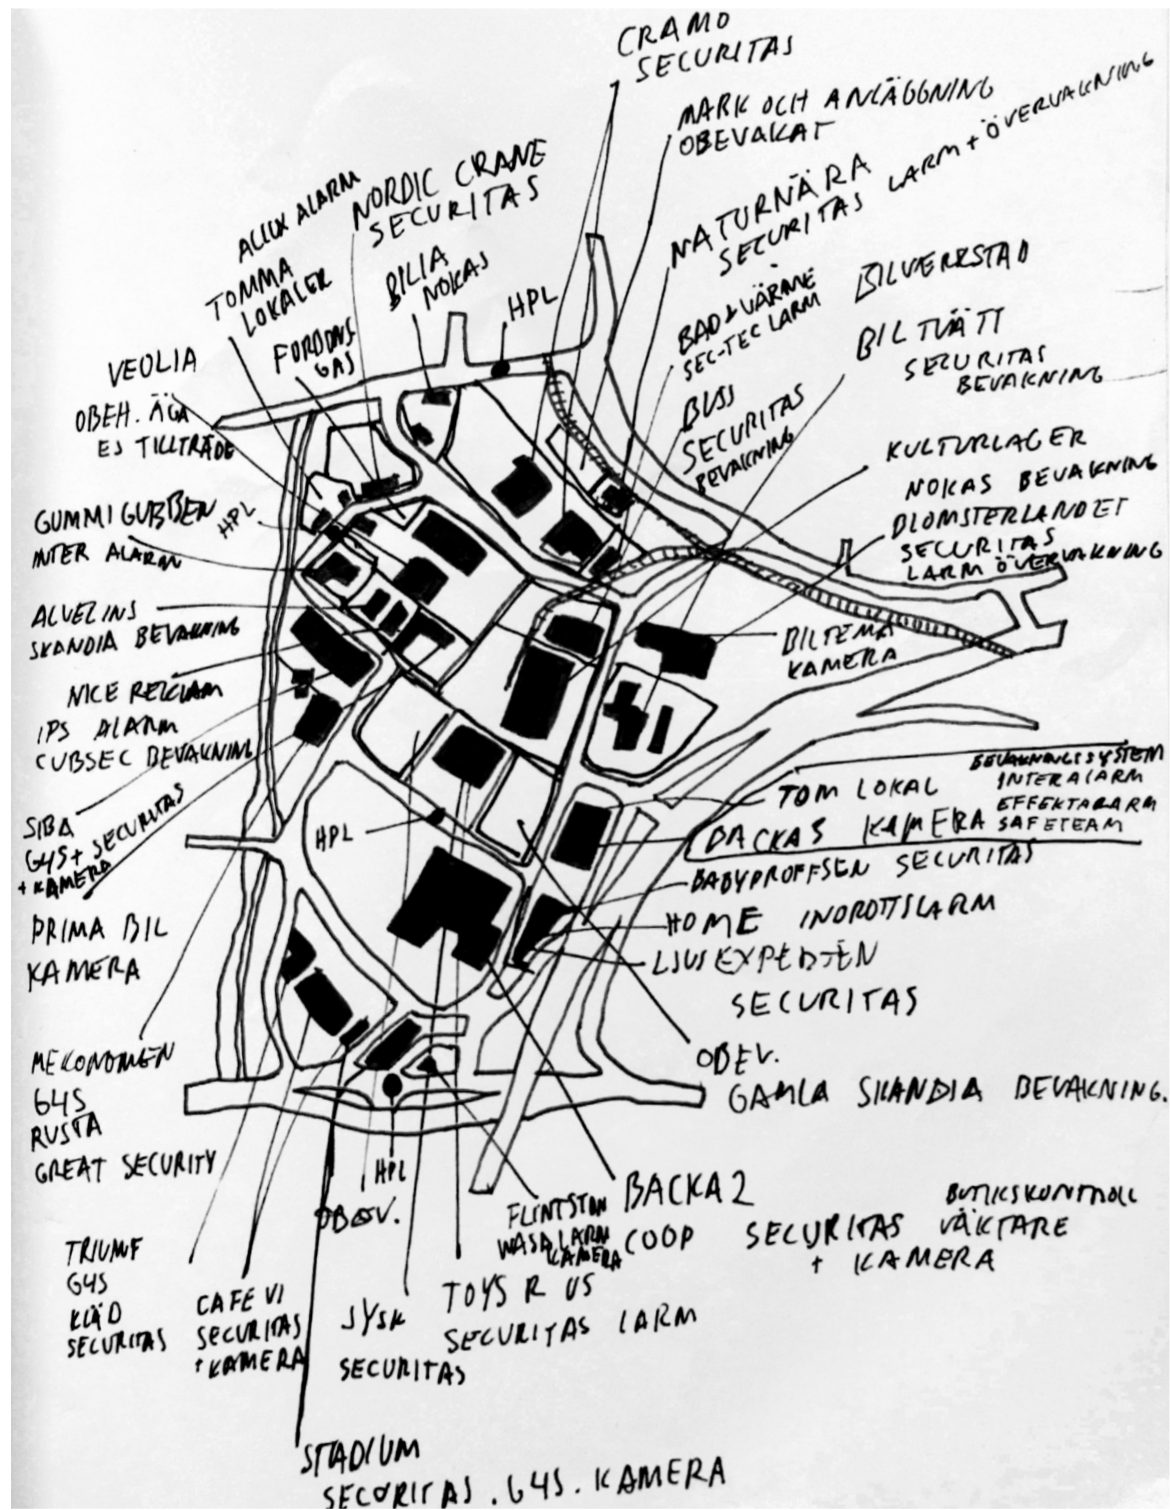 CRAMO
SECURITAS
MARK OCH ANLÄGGNING
OBEVAKAT
NATURNÄRA
SECURITAS LARM + ÖVERVAKNING
NORDIC CRANE
SECURITAS
ALARM
TOMMA
LOKALER
BILIA
NOKAS
HPL
FORDONS
GAS
BAD & VÄRME
SEC-TEC LARM
BILVERKSTAD
BILTVÄTT
SECURITAS
BEVAKNING
VEOLIA
OBEH. ÄGA
EJ TILLTRÄDE
BUSS
SECURITAS
BEVAKNING
KULTURLAGER
NOKAS BEVAKNING
BLOMSTERLANDET
SECURITAS
LARM ÖVERVAKNING
GUMMIGUBBEN
HPL
INTER ALARM
ALVELINS
SKANDIA BEVAKNING
BILTEMA
KAMERA
NICE REKLAM
IPS ALARM
CUBSEC BEVAKNING
SIBA
G4S + SECURITAS
+ KAMERA
HPL
TOM LOKAL
BEVAKNINGSSYSTEM
INTERALARM
EFFEKTALARM
SAFETEAM
BACKAS KAMERA
BABYPROFFSEN SECURITAS
HOME INBROTTSLARM
LJUSEXPERTEN
SECURITAS
PRIMA BIL
KAMERA
OBEV.
GAMLA SKANDIA BEVAKNING.
MEKONOMEN
G4S
RUSTA
GREAT SECURITY
HPL
OBEV.
FLINTSTON
WASA LARM
KAMERA
BACKA 2
COOP SECURITAS
BUTIKSKONTROLL
VÄKTARE
+ KAMERA
TRIUMF
G4S
KLÄD
SECURITAS
CAFE VI
SECURITAS
+ KAMERA
JYSK
SECURITAS
TOYS R US
SECURITAS LARM
STADIUM
SECURITAS . G4S . KAMERA